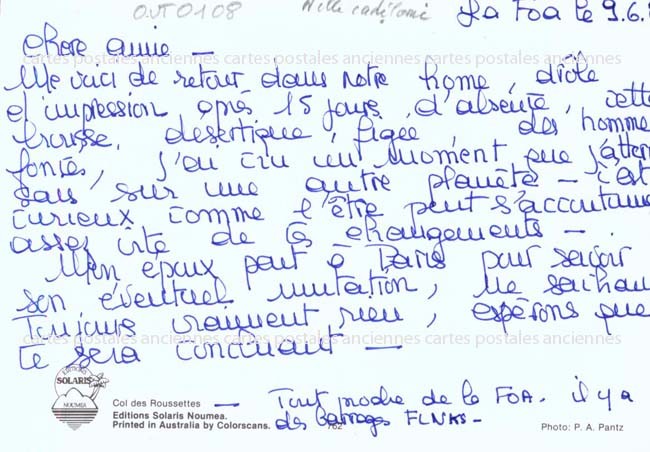 OUT0108 Nlle calédonie La Foa le 9.6.
Chère amie —
Me voici de retour dans notre home, drôle
d'impression après 15 jours d'absence, cette
brousse, désertique, figée, des hommes
foncés, j'ai cru un moment que j'atterri
sais sur une autre planète — c'est
curieux comme l'être peut s'accoutumer
assez vite de ces changements —.
Mon époux part à Paris pour savoir
son éventuel mutation, ne sachant
Toujours vraiment rien, espérons que
ce sera concluant —
cartes postales anciennes cartes postales anciennes cartes postales anciennes
cartes postales anciennes cartes postales anciennes cartes postales anciennes
EDITIONS SOLARIS NOUMEA
Col des Roussettes — Tout proche de la FOA. il y a
Editions Solaris Noumea. des barrages FLNKS —
Printed in Australia by Colorscans. 762 Photo: P. A. Pantz